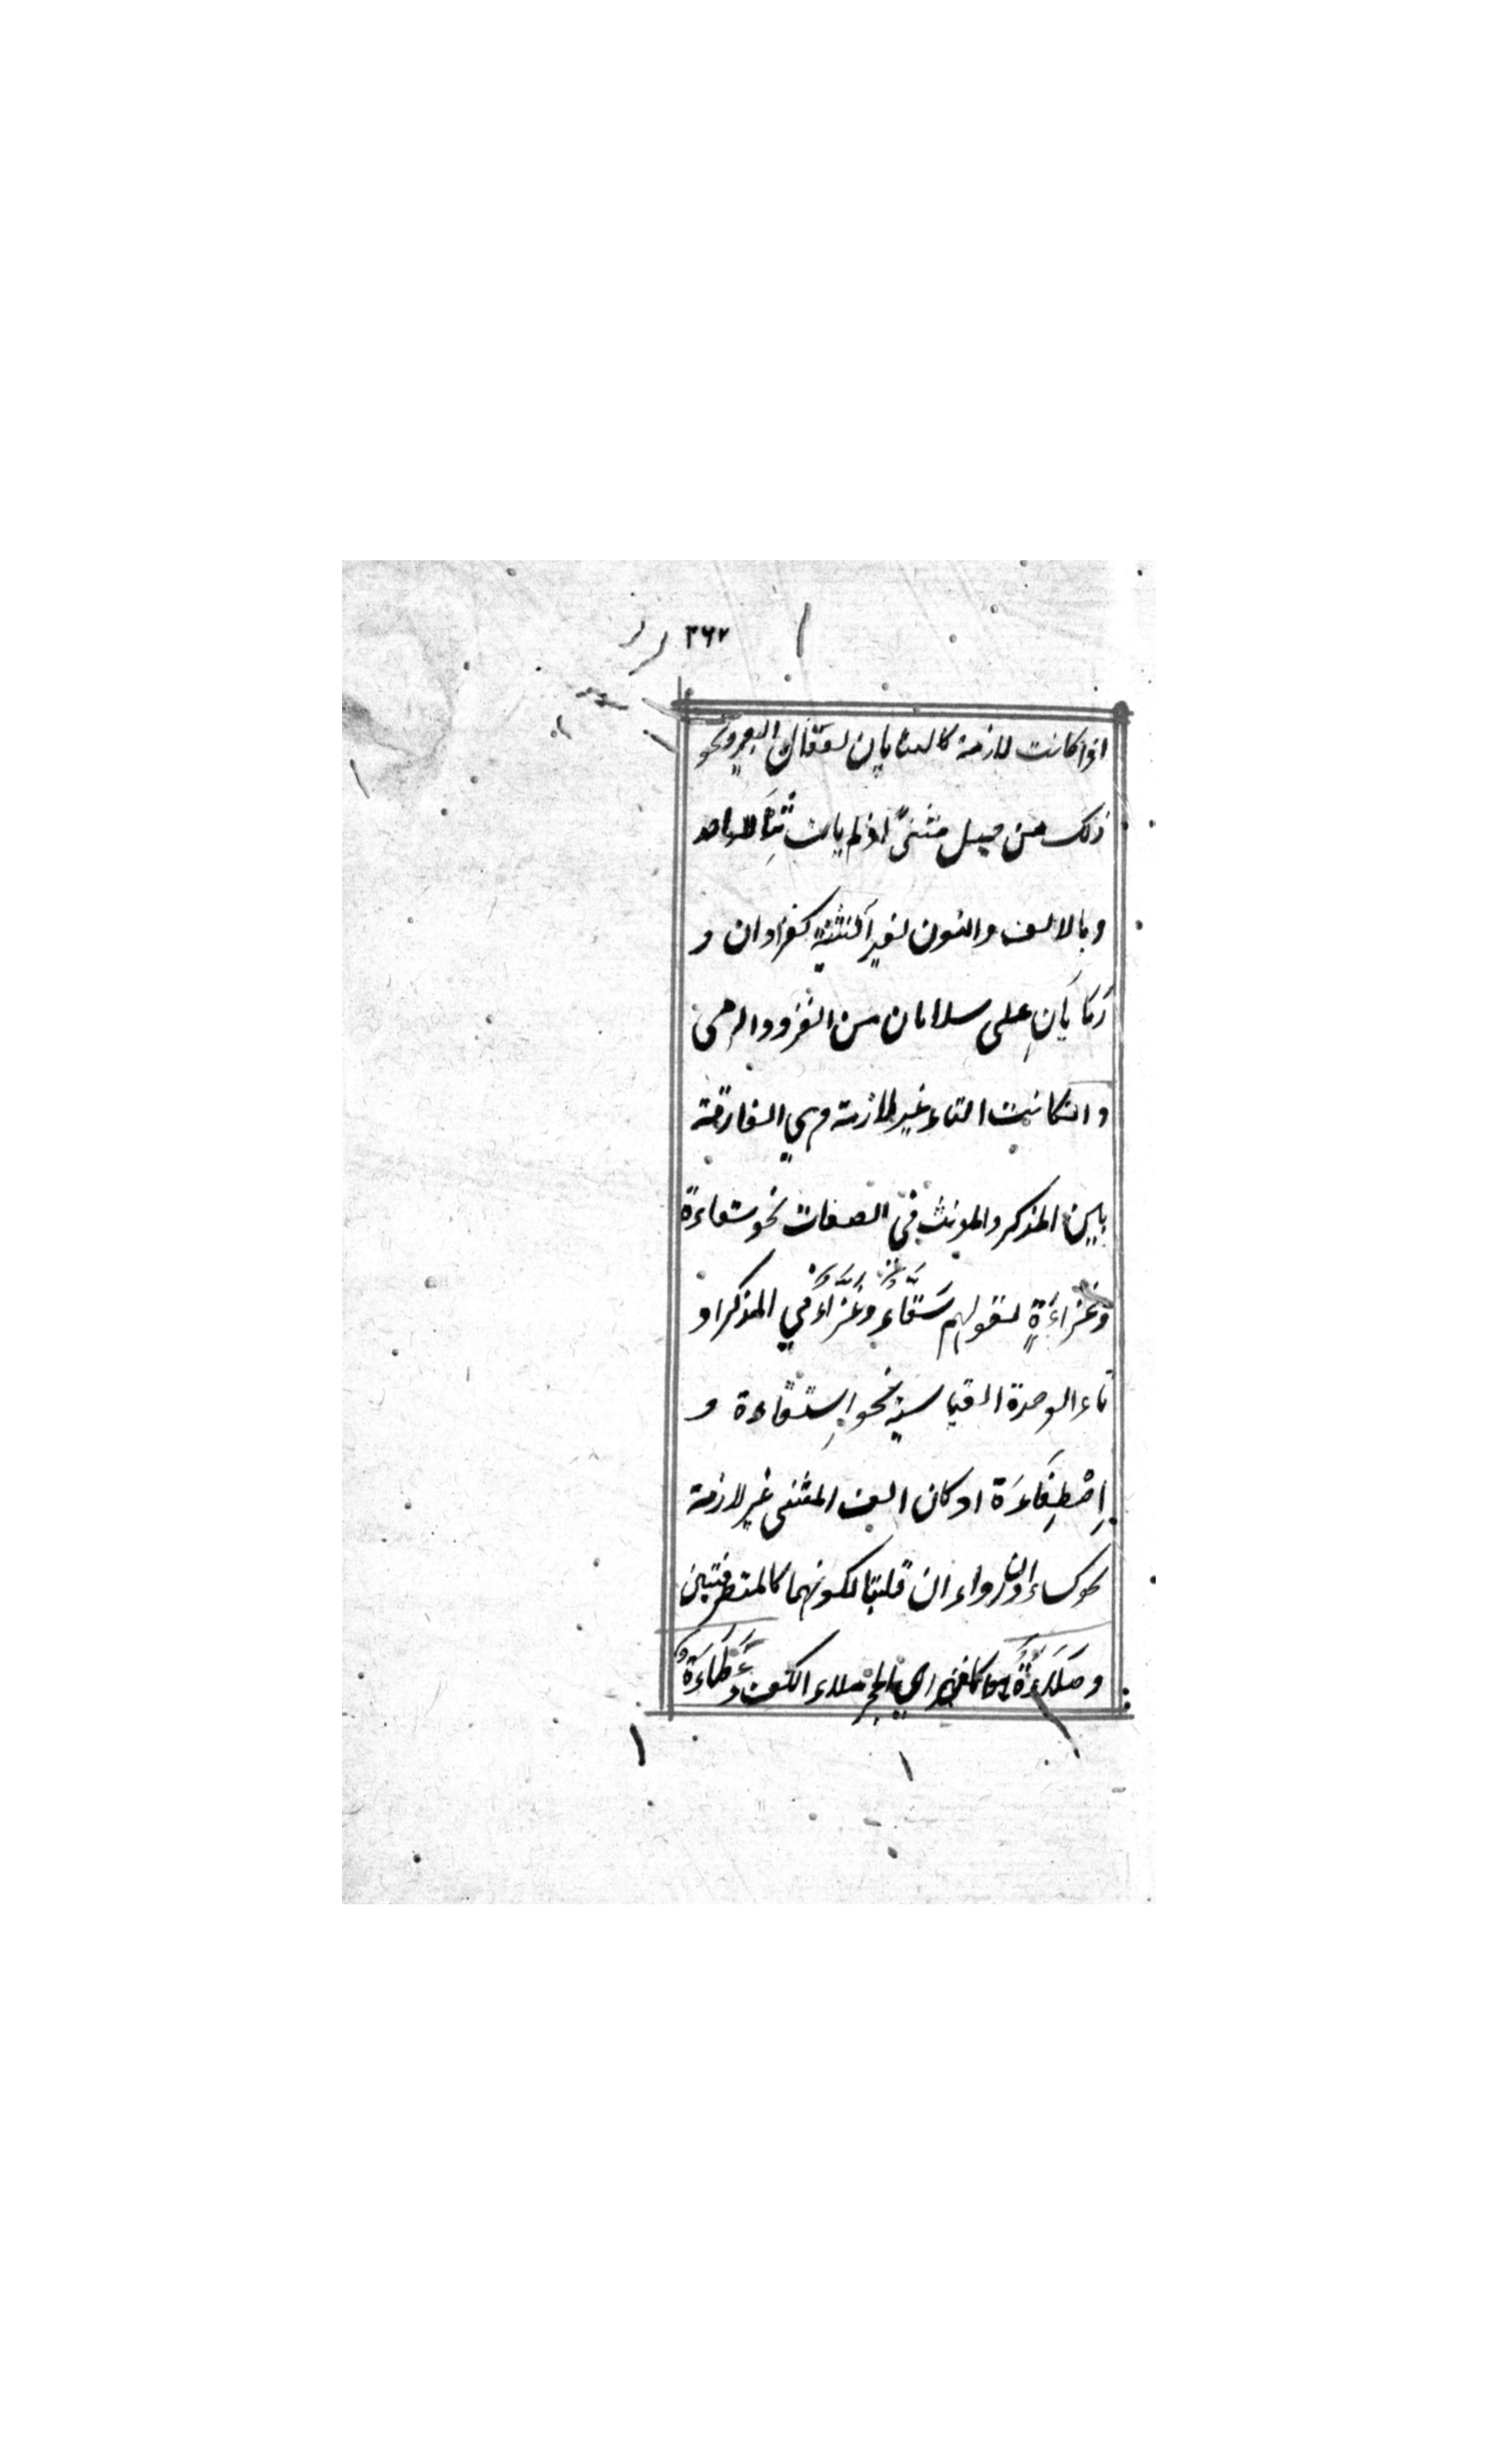 ٣٦٧
اذا كانت لازمة كالثنايان لعقال البعير ونحو
ذلك من قبيل مثنىً اذ لم يات ثِنَاءٌ للواحد
وبالالف والنون لغير التثنية كغزاوان و
رَمَايَانِ على سلامان من الغزو والرمى
وانكانت التاء غير لازمة وهي الفارقة
بين المذكر والمونث في الصفات نحو سقاءة
وغَزاءَةٍ لقولهم سَقّاء وغَزّاء في المذكر او
تاء الوحدة القياسية نحو اِستقاءة و
اِصْطِفَاءَة او كان الف المثنى غير لازمة
نحو كساءان ورواءان قلبتا لكونهما كالمتطرفتين
وصَلَاءَةٌ صلاء الكف وعَظَاءَةٌ